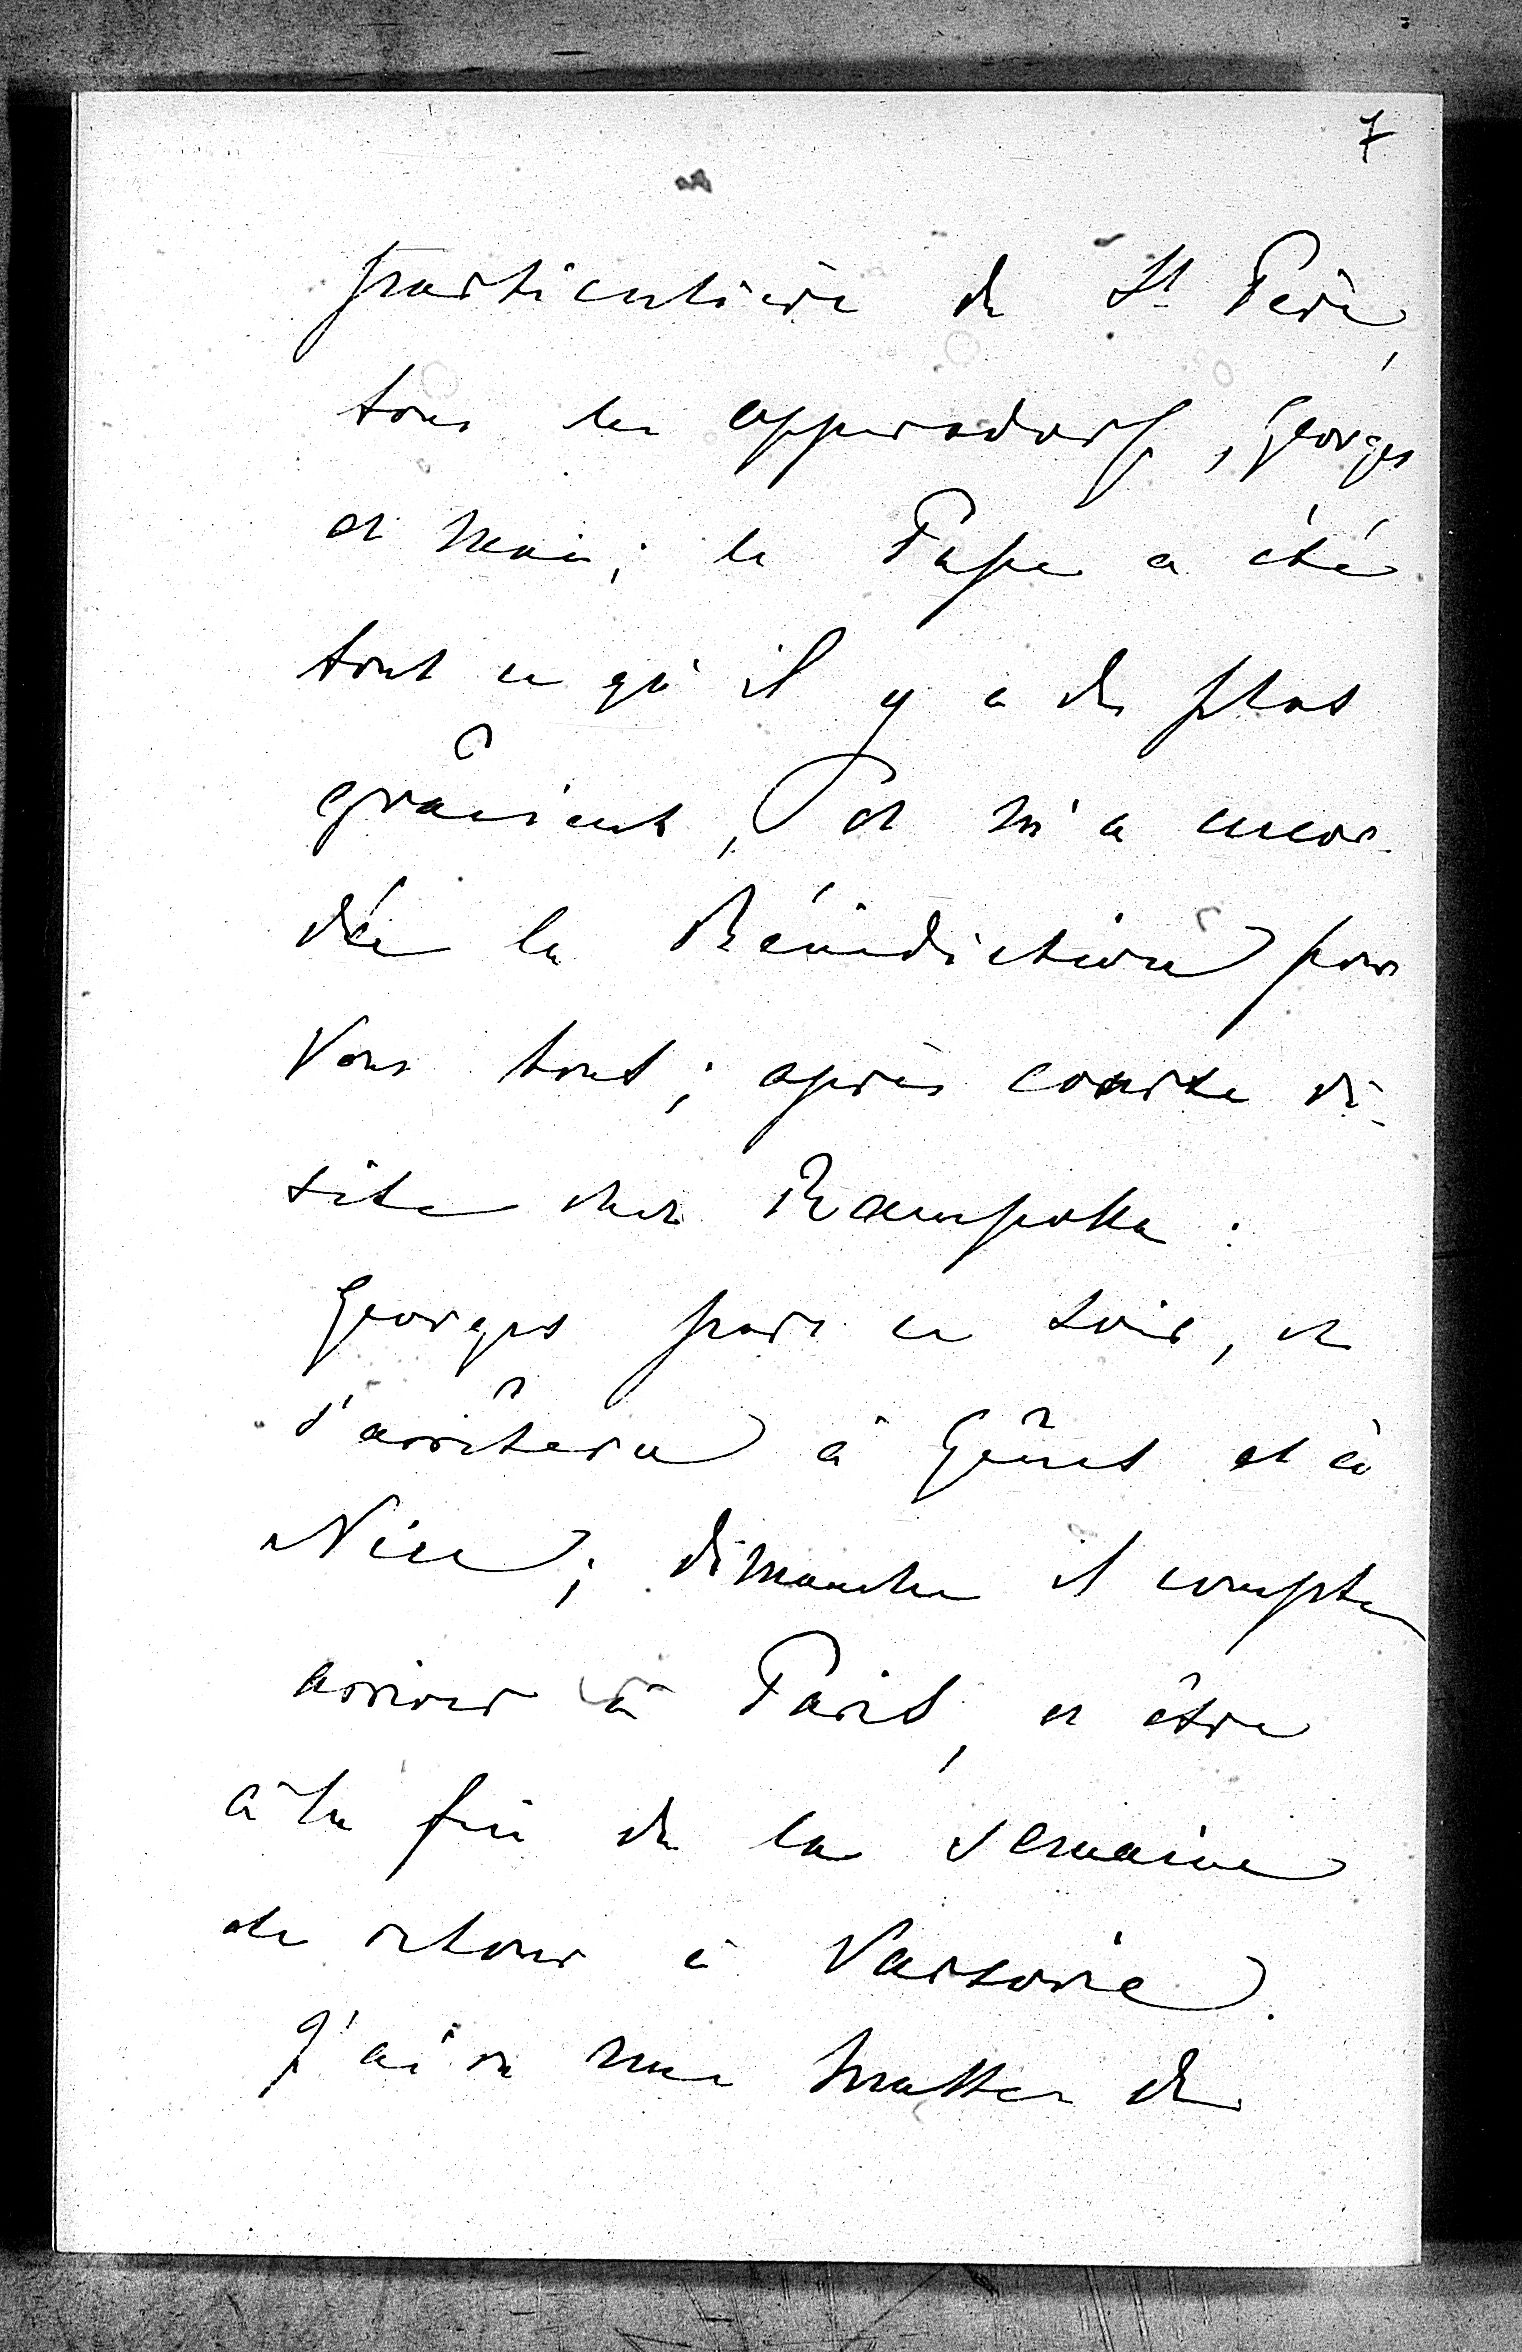 7
particulière du St. Père,
tous les Oppersdorff, Georges
et moi; le Pape a été
tout ce qu'il y a de plus
grâcieux, et m'a accor-
dée la Bénédiction pour
Vous tous; après courte vi-
site chez Rampolla.
Georges part ce soir, et
s'arrêtera à Gênes et à
Nice; dimanche il compte
arriver à Paris, et être
à la fin de la semaine
de retour à Varsovie.
J'ai eu une lettre de